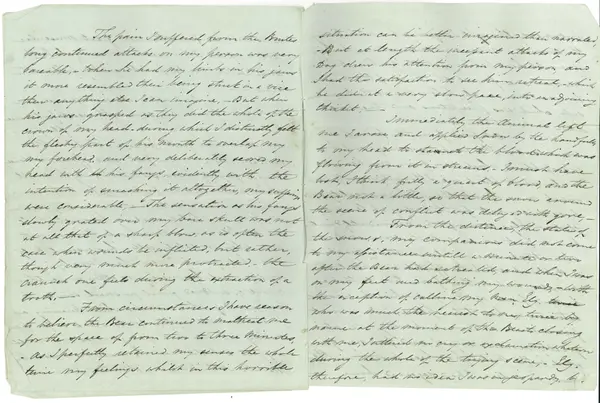 The pain I suffered from the Brutes
long continued attacks on my person was very
bearable. When he had my limbs in his jaws
it more resembled their being stuck in a vice
than anything else I can imagine. But when
his jaws grasped as they did the whole of the
crown of my head, during which I distinctly felt
the fleshy part of his mouth to overlap my
my forehead, and very deliberately scored my
head with his fangs, evidently with the
intention of smashing it altogether, my suffering
were considerable. The sensation as his fangs
slowly grated over my bare skull was not
at all that of a sharp blow as is often the
case when wounds be inflicted, but rather,
though very much more protracted, the
craunch one feels during the extraction of a
tooth.
From circumstances I have reason
to believe the Bear continued to maltreat me
for the space of from two to three Minutes,
As I perfectly retained my senses the whole
time my feelings, whilst in this horrible
situation can be better imagined than narrated.
But at length the incessant attacks of my
Dog drew his attention from my person and
I had the satisfaction to see him retreat, which
he did at a very slow pace, into an adjoining
thicket.
Immediately the Animal left
me I arose and applied snow by the handfuls
to my head to staunch the blood which was
flowing from it in streams. I must have
lost, I think, fully a quart of blood, and the
Bear not a little, so that the snow around
the scene of conflict was deluged with gore.
From the distance, the state of
the snow &, my companions did not come
to my assistance untill a minute or two
after the Bear had retreated, and when I was
on my feet and bathing my wounds, with
the exception of calling my Man, Elg,
who was much the nearest to me, twice by
name at the moment of the Beasts closing
with me, I uttered no cry or exclamation whatever
during the whole of the trying scene. Elg,
therefore, had no idea I was in jeopardy,